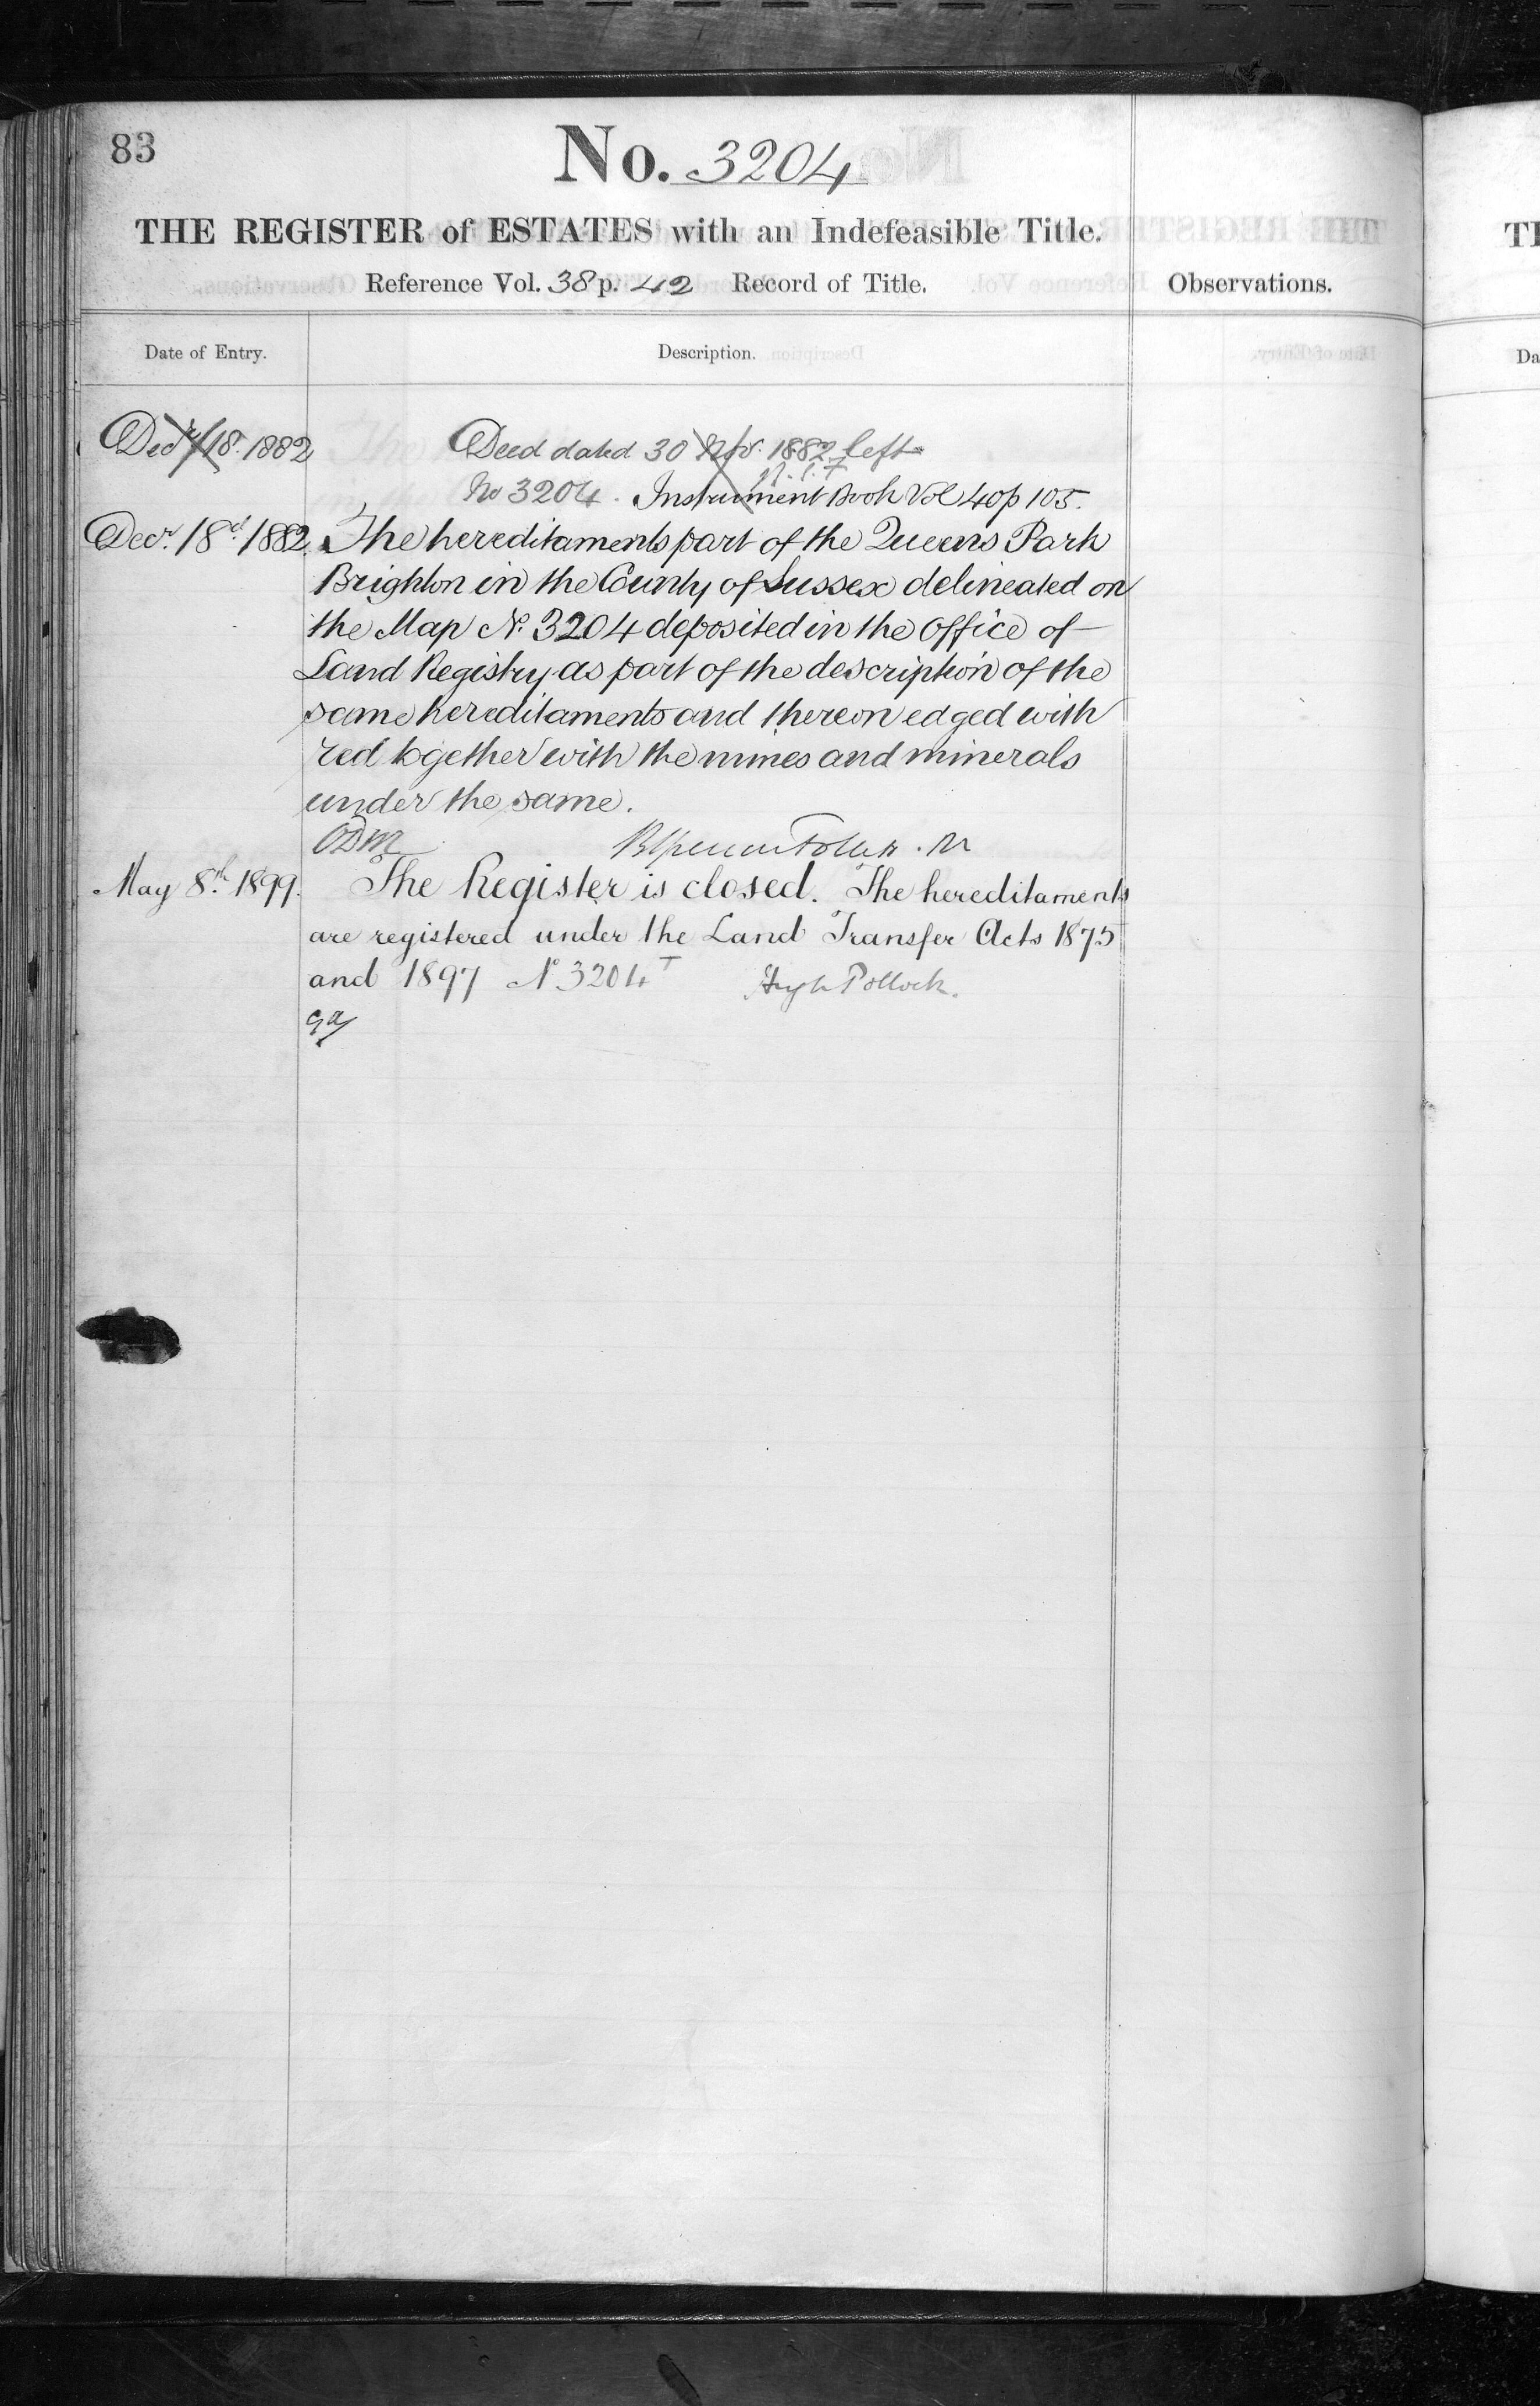 83
No. 3204
THE REGISTER of ESTATES with an Indefeasible Title.
Reference Vol. 38 p. 42 Record of Title.
Observations.
Date of Entry.
Description.
Decr 18. 1882
Deed dated 30 Nov. 1882 left
No 3204. Instrument Book Vol 40 p 105.
Decr. 18d. 1882. The hereditaments part of the Queens Park
Brighton in the County of Sussex delineated on
the Map No. 3204 deposited in the office of
Land Registry as part of the description of the
same hereditaments and thereon edged with
red together with the mines and minerals
under the same.
May 8th. 1899. The Register is closed. The hereditaments
are registered under the Land Transfer Acts 1875
and 1897 No 3204 T Hugh Pollock.